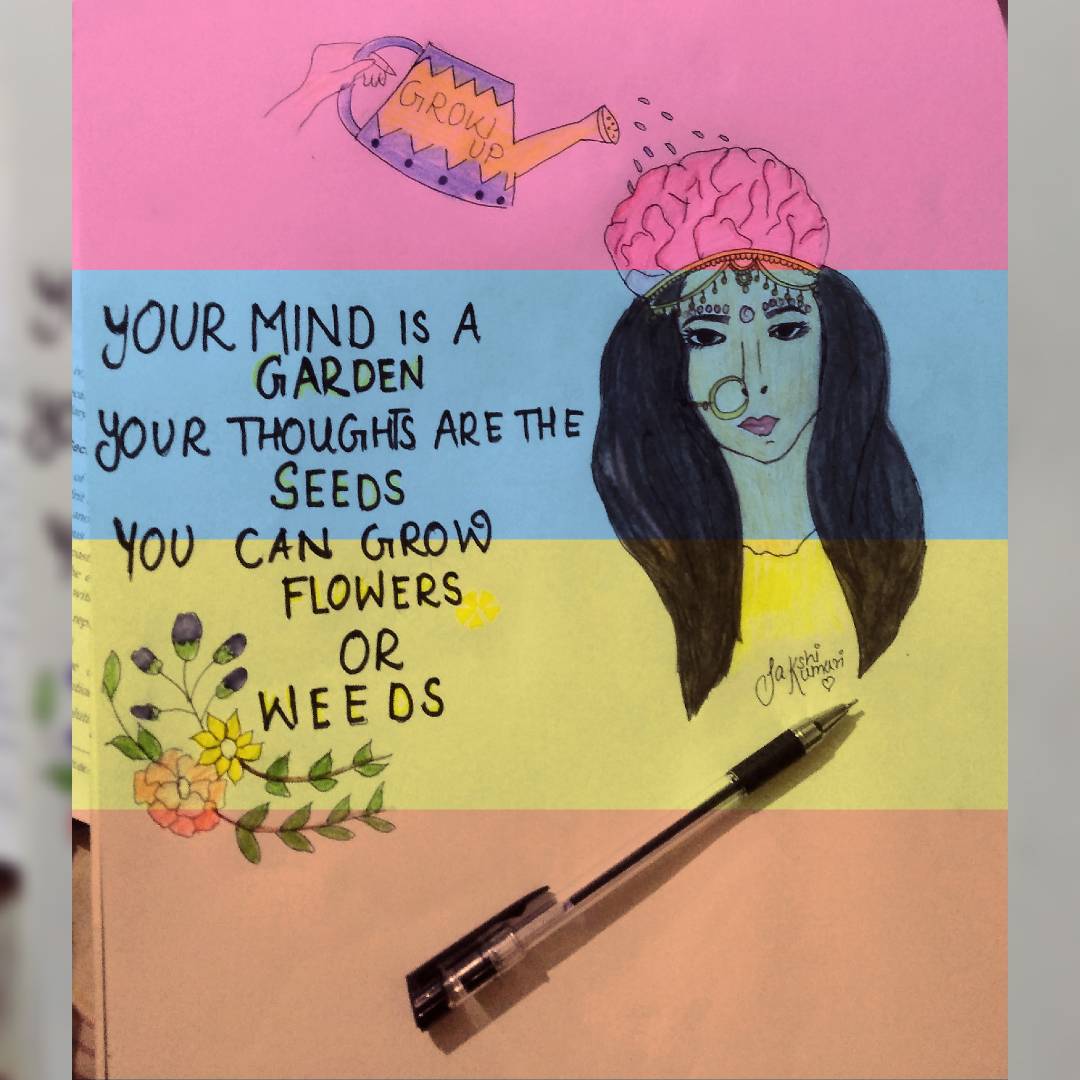 GROW
UP
YOUR MIND IS A
GARDEN
YOUR THOUGHTS ARE THE
SEEDS
YOU CAN GROW
FLOWERS
OR
WEEDS
Sakshi
Kumari